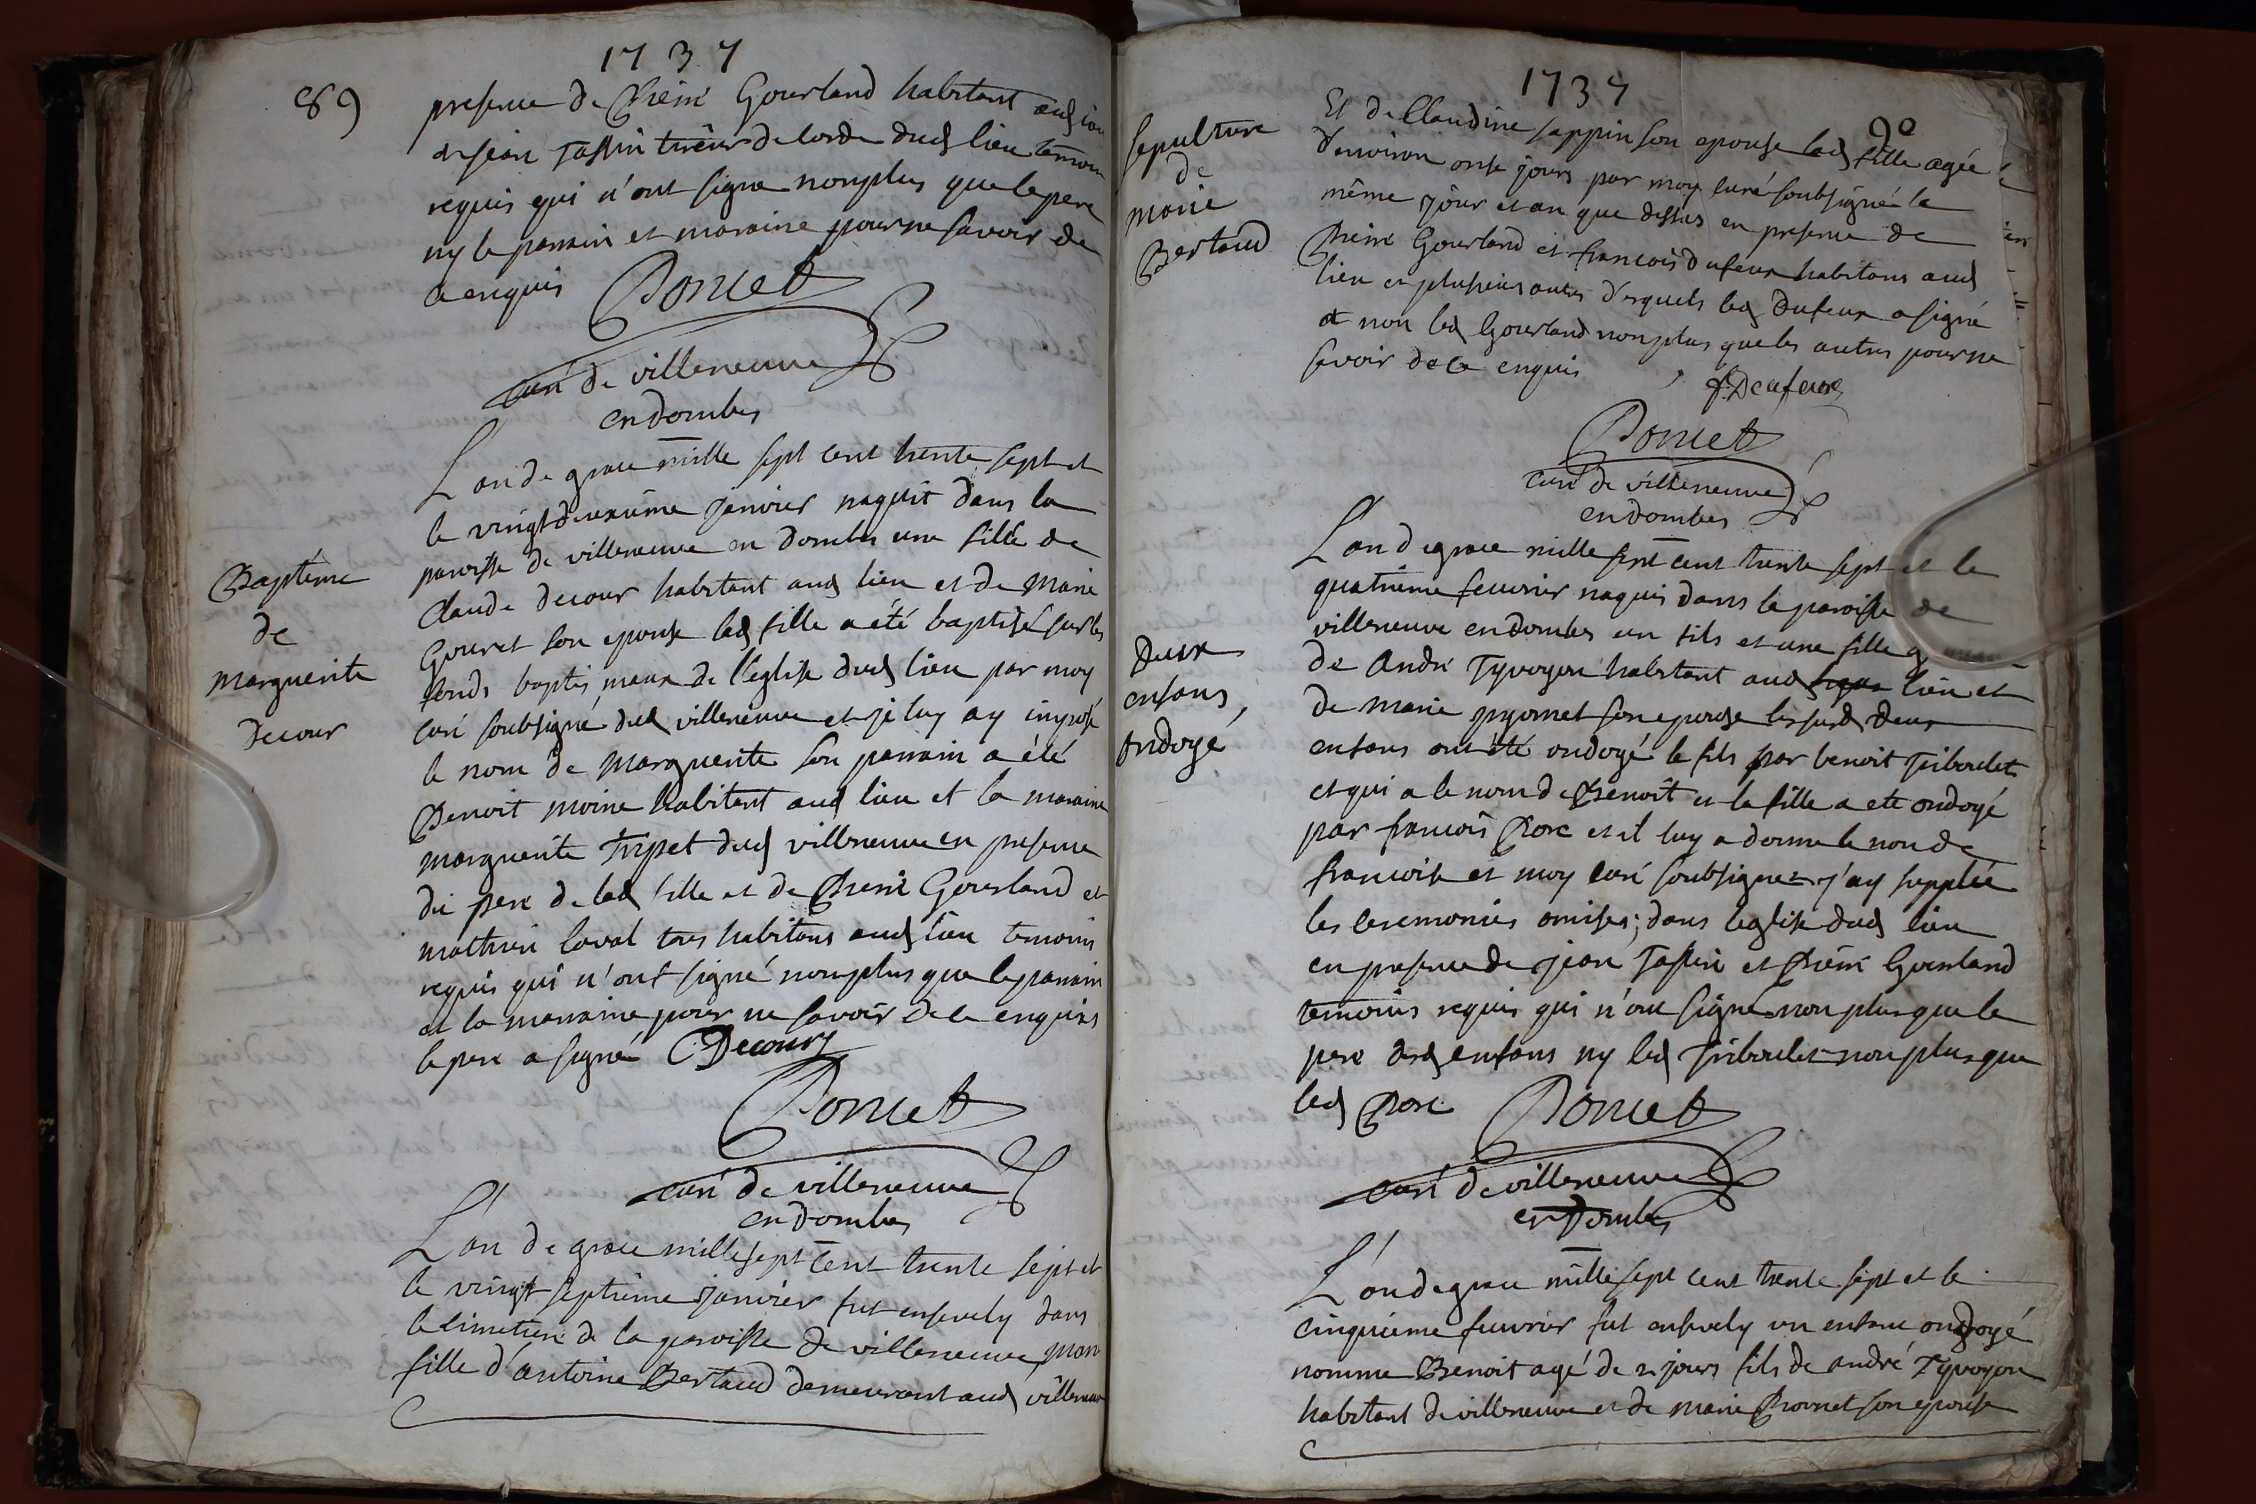 1737
89
presence de Pierre Gourland habitant aud lieu
de jean Tassin tireur de corde dud lieu temoin
requis qui n'ont signe nonplus que le pere
ny le parrain et maraine pour ne savoir de
ce enquis Poncet
curé de villeneuve
en dombes
Baptême
de
marguerite
Decour
L'an de grace mille sept cent trente sept et
le vingt deuxième janvier naquit dans la
paroisse de villeneuve en dombes une fille de
Claude decour habitant aud lieu et de Marie
Gouret son epouse lad fille a été baptisé sur les
fonds baptis maux de l'eglise dud lieu par moy
curé soubsigné dud villeneuve et je luy ay imposé
le nom de marguerite son parrain a été
Benoit moine habitant aud lieu et la maraine
marguerite Tripet dud villeneuve en presence
du pere de lad fille et de Pierre Gourland et
mathieu laval tous habitans aud lieu temoins
requis qui n'ont signé nonplus que le parrain
et la marraine pour ne savoir de ce enquis
le pere a signé C Decour
Poncet
curé de villeneuve
en dombes
L'an de grace mille sept cent trente sept et
le vingt septième janvier fut ensevely dans
le cimetiere de la paroisse de villeneuve Marie
fille d'antoine Bertaud demeurant aud villeneuve
1737
90
sepulture
de
marie
Bertaud
Et de Claudine sappin son epouse lad fille agée
d'environ onse jours par moy curé soubsigné le
même jour et an que dessus en presence de
Pierre Gourland et francois dufeux habitans aud
lieu et plusieurs autres d'esquels led Dufeux a signé
et non led Gourland nonplus que les autres pour ne
savoir de ce enquis
f. Deufeux
Poncet
curé de villeneuve
en dombes
Deux
enfans
ondoyé
L'an de grace mille sept cent trente sept et le
quatrieme feuvrier naquis dans la paroisse de
villeneuve en dombes un fils et une fille
de André Tyvoyon habitant aud lieu et
de marie pyornet son epouse lesusd deux
enfans ont été ondoyé le fils par benoit Triboulet
et qui a le nom de Benoît et la fille a ete ondoyé
par francois Porc et il luy a donne le nom de
francoise et moy curé soubsignez j'ay supplée
les ceremonies omises, dans leglise dud lieu
en presence de jean Tassin et Pierre Gourland
temoins requis qui n'ont signe non plus que le
pere desd enfans ny led Triboulet nonplus que
led Porc Poncet
curé de villeneuve
en dombes
L'an de grace mille sept cent trente sept et le
cinquieme feuvrier fut ensevely un enfant ondoyé
nomme Benoit agé de 2 jours fils de andré Tyvoyon
habitant de villeneuve et de marie Piornet son epouse